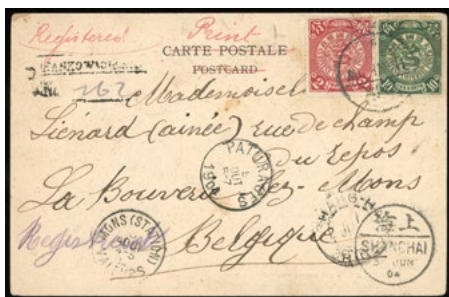 Registered Print
CARTE POSTALE
POSTCARD
No. 162
Mademoiselle
Liénard (ainée) rue de champ
du Repos
La Bouverie lez-Mons
Belgique
Registered
PATURAGES
MONS (STATION)
上海
SHANGHAI
JUN
04